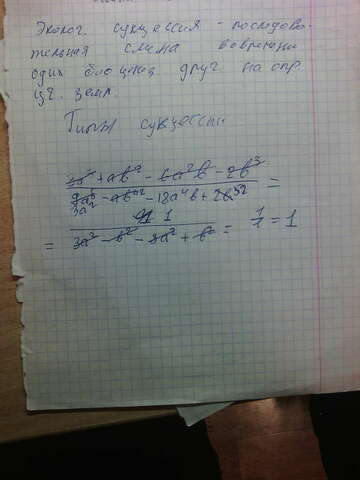 Эколог. сукцессия - последова-
тельная смена во времени
одних биоценоз друг на опр
уч. земл.
Типы сукцессии
3a³ + ab² - 6a²b - 2b³
9a⁵ - ab⁴² - 18a⁴b + 2b⁵² =
3a²
1
= 3a² - b² - 3a² + b² = 1/1 = 1